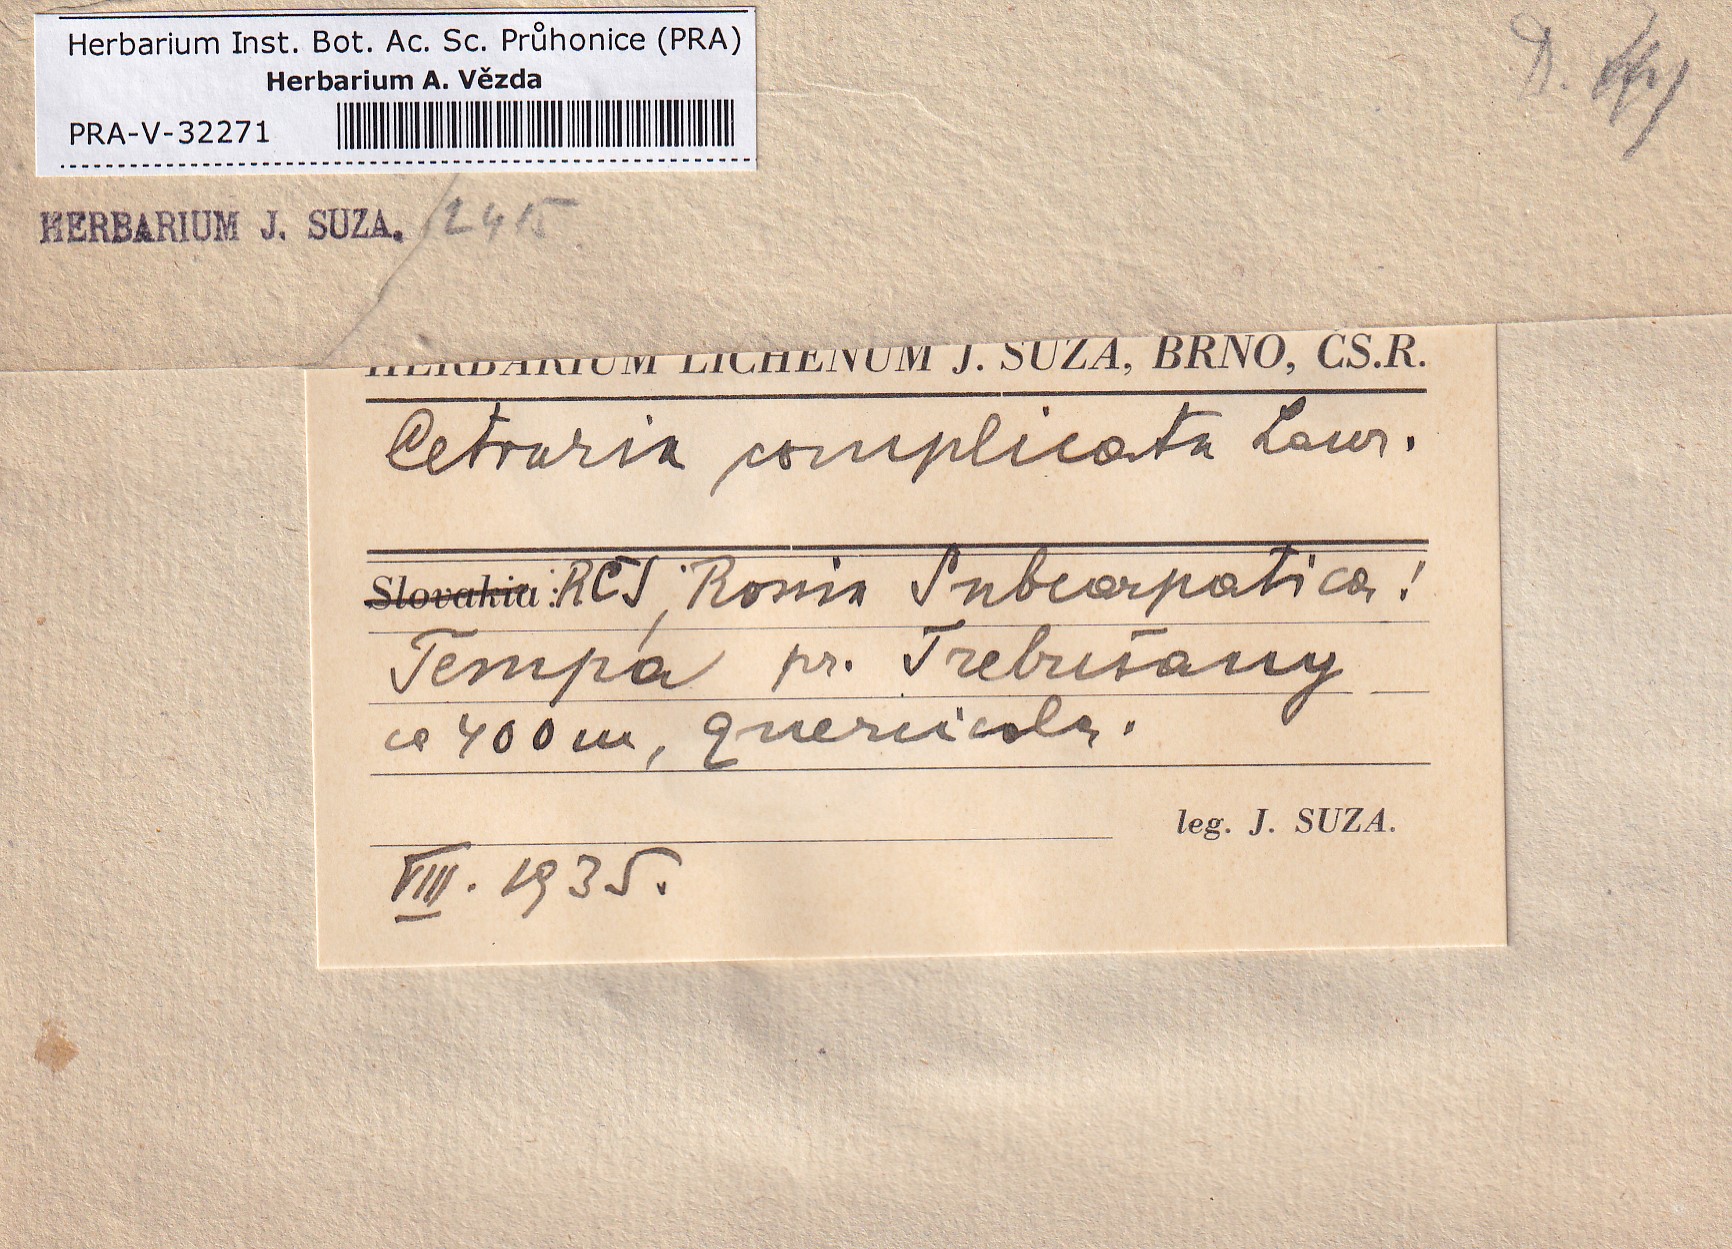 Herbarium Inst. Bot. Ac. Sc. Průhonice (PRA)
Herbarium A. Vězda
PRA-V-32271
HERBARIUM J. SUZA. 2415
HERBARIUM LICHENUM J. SUZA, BRNO, ČS.R.
Cetraria complicata Laur.
Slovakia: RČS, Rossia Subcarpatica:
Tempa pr. Trebušany
ca 400 m, quercicola.
leg. J. SUZA.
VIII. 1935.